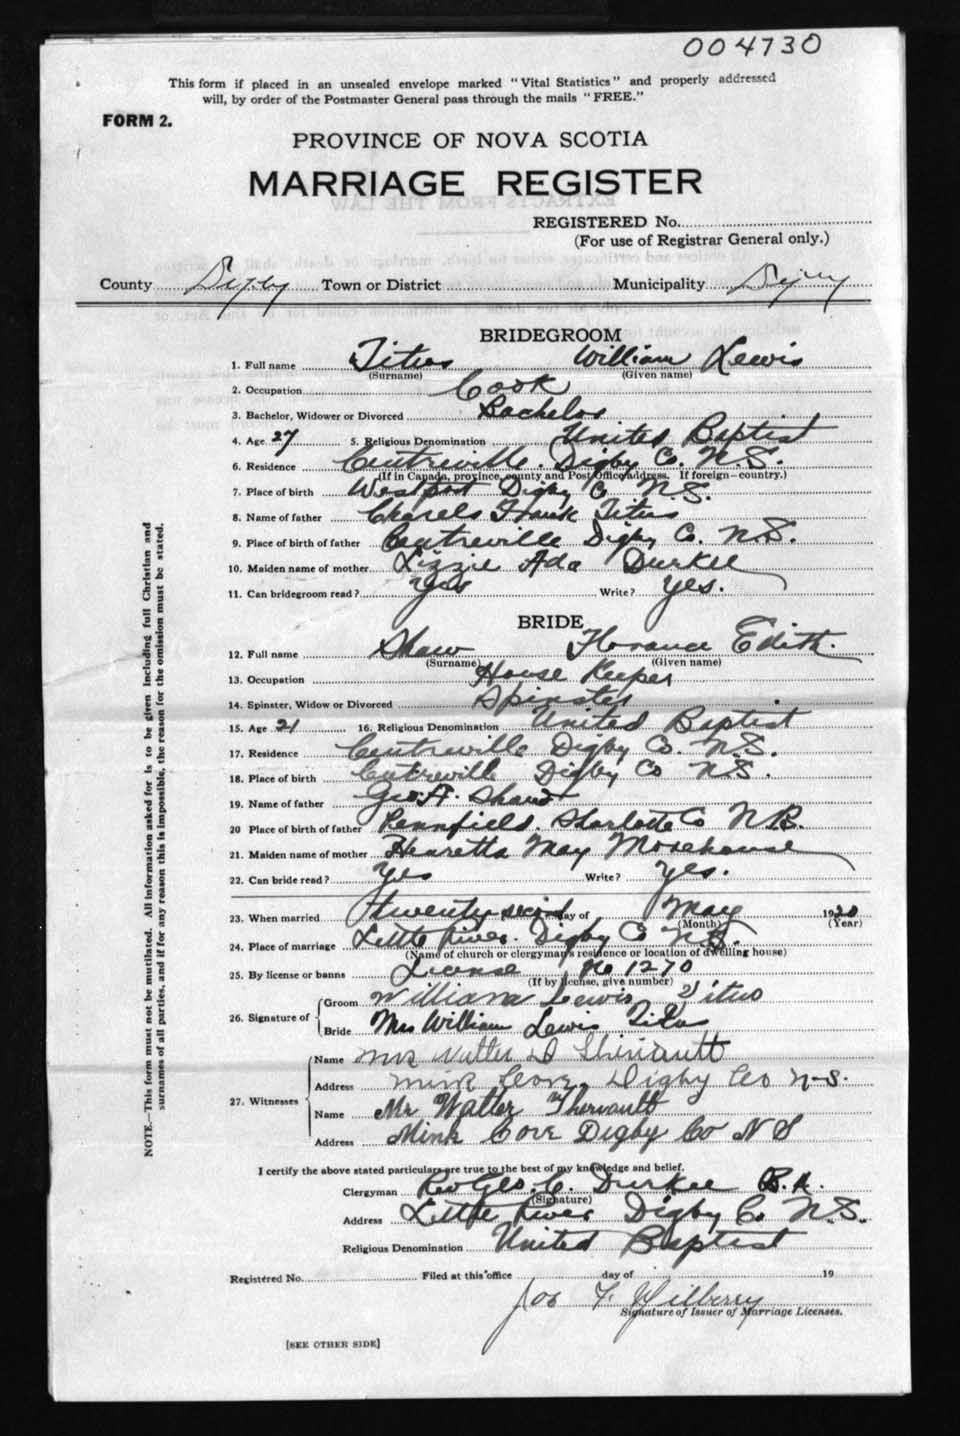 004730
This form if placed in an unsealed envelope marked "Vital Statistics" and properly addressed
will, by order of the Postmaster General pass through the mails "FREE."
FORM 2.
PROVINCE OF NOVA SCOTIA
MARRIAGE REGISTER
REGISTERED No.
(For use of Registrar General only.)
County Digby Town or District Municipality Digby
BRIDEGROOM
1. Full name Titus William Lewis
(Surname) (Given name)
2. Occupation Cook
3. Bachelor, Widower or Divorced Bachelor
4. Age 27 5. Religious Denomination United Baptist
6. Residence Centreville. Digby Co. N.S.
(If in Canada, province, county and Post Office address. If foreign—country.)
7. Place of birth Westport Digby Co N.S.
8. Name of father Charels Frank Titus
9. Place of birth of father Centreville Digby Co. N.S.
10. Maiden name of mother Lizzie Ada Durkee
11. Can bridegroom read? Yes Write? Yes.
BRIDE
12. Full name Shaw Florance Edith.
(Surname) (Given name)
13. Occupation House Keeper
14. Spinster, Widow or Divorced Spinster
15. Age 21 16. Religious Denomination United Baptist
17. Residence Centreville Digby Co. N.S.
18. Place of birth Centreville Digby Co N.S.
19. Name of father Geo. A. Shaw
20 Place of birth of father Pennfield. Sharlotte Co N.B.
21. Maiden name of mother Henretta May Morehouse
22. Can bride read? Yes Write? Yes.
23. When married twenty second day of May 1920
(Month) (Year)
24. Place of marriage Little River. Digby Co N.S.
(Name of church or clergyman's residence or location of dwelling house)
25. By license or banns License No 1270
(If by license, give number)
26. Signature of Groom William Lewis Titus
Bride Mrs William Lewis Titus
27. Witnesses Name Mrs Walter D Theriault
Address Mink Cove, Digby Co N-S.
Name Mr Walter Theriault
Address Mink Cove Digby Co N S
I certify the above stated particulars are true to the best of my knowledge and belief.
Clergyman Rev Geo. C. Durkee B.A.
(Signature)
Address Little River Digby Co N.S.
Religious Denomination United Baptist
Registered No. Filed at this office day of 19
Jos F.
Signature of Issuer of Marriage Licenses.
[SEE OTHER SIDE]
NOTE.—This form must not be mutilated. All information asked for is to be given including full Christian and
surnames of all parties, and if for any reason this is impossible, the reason for the omission must be stated.